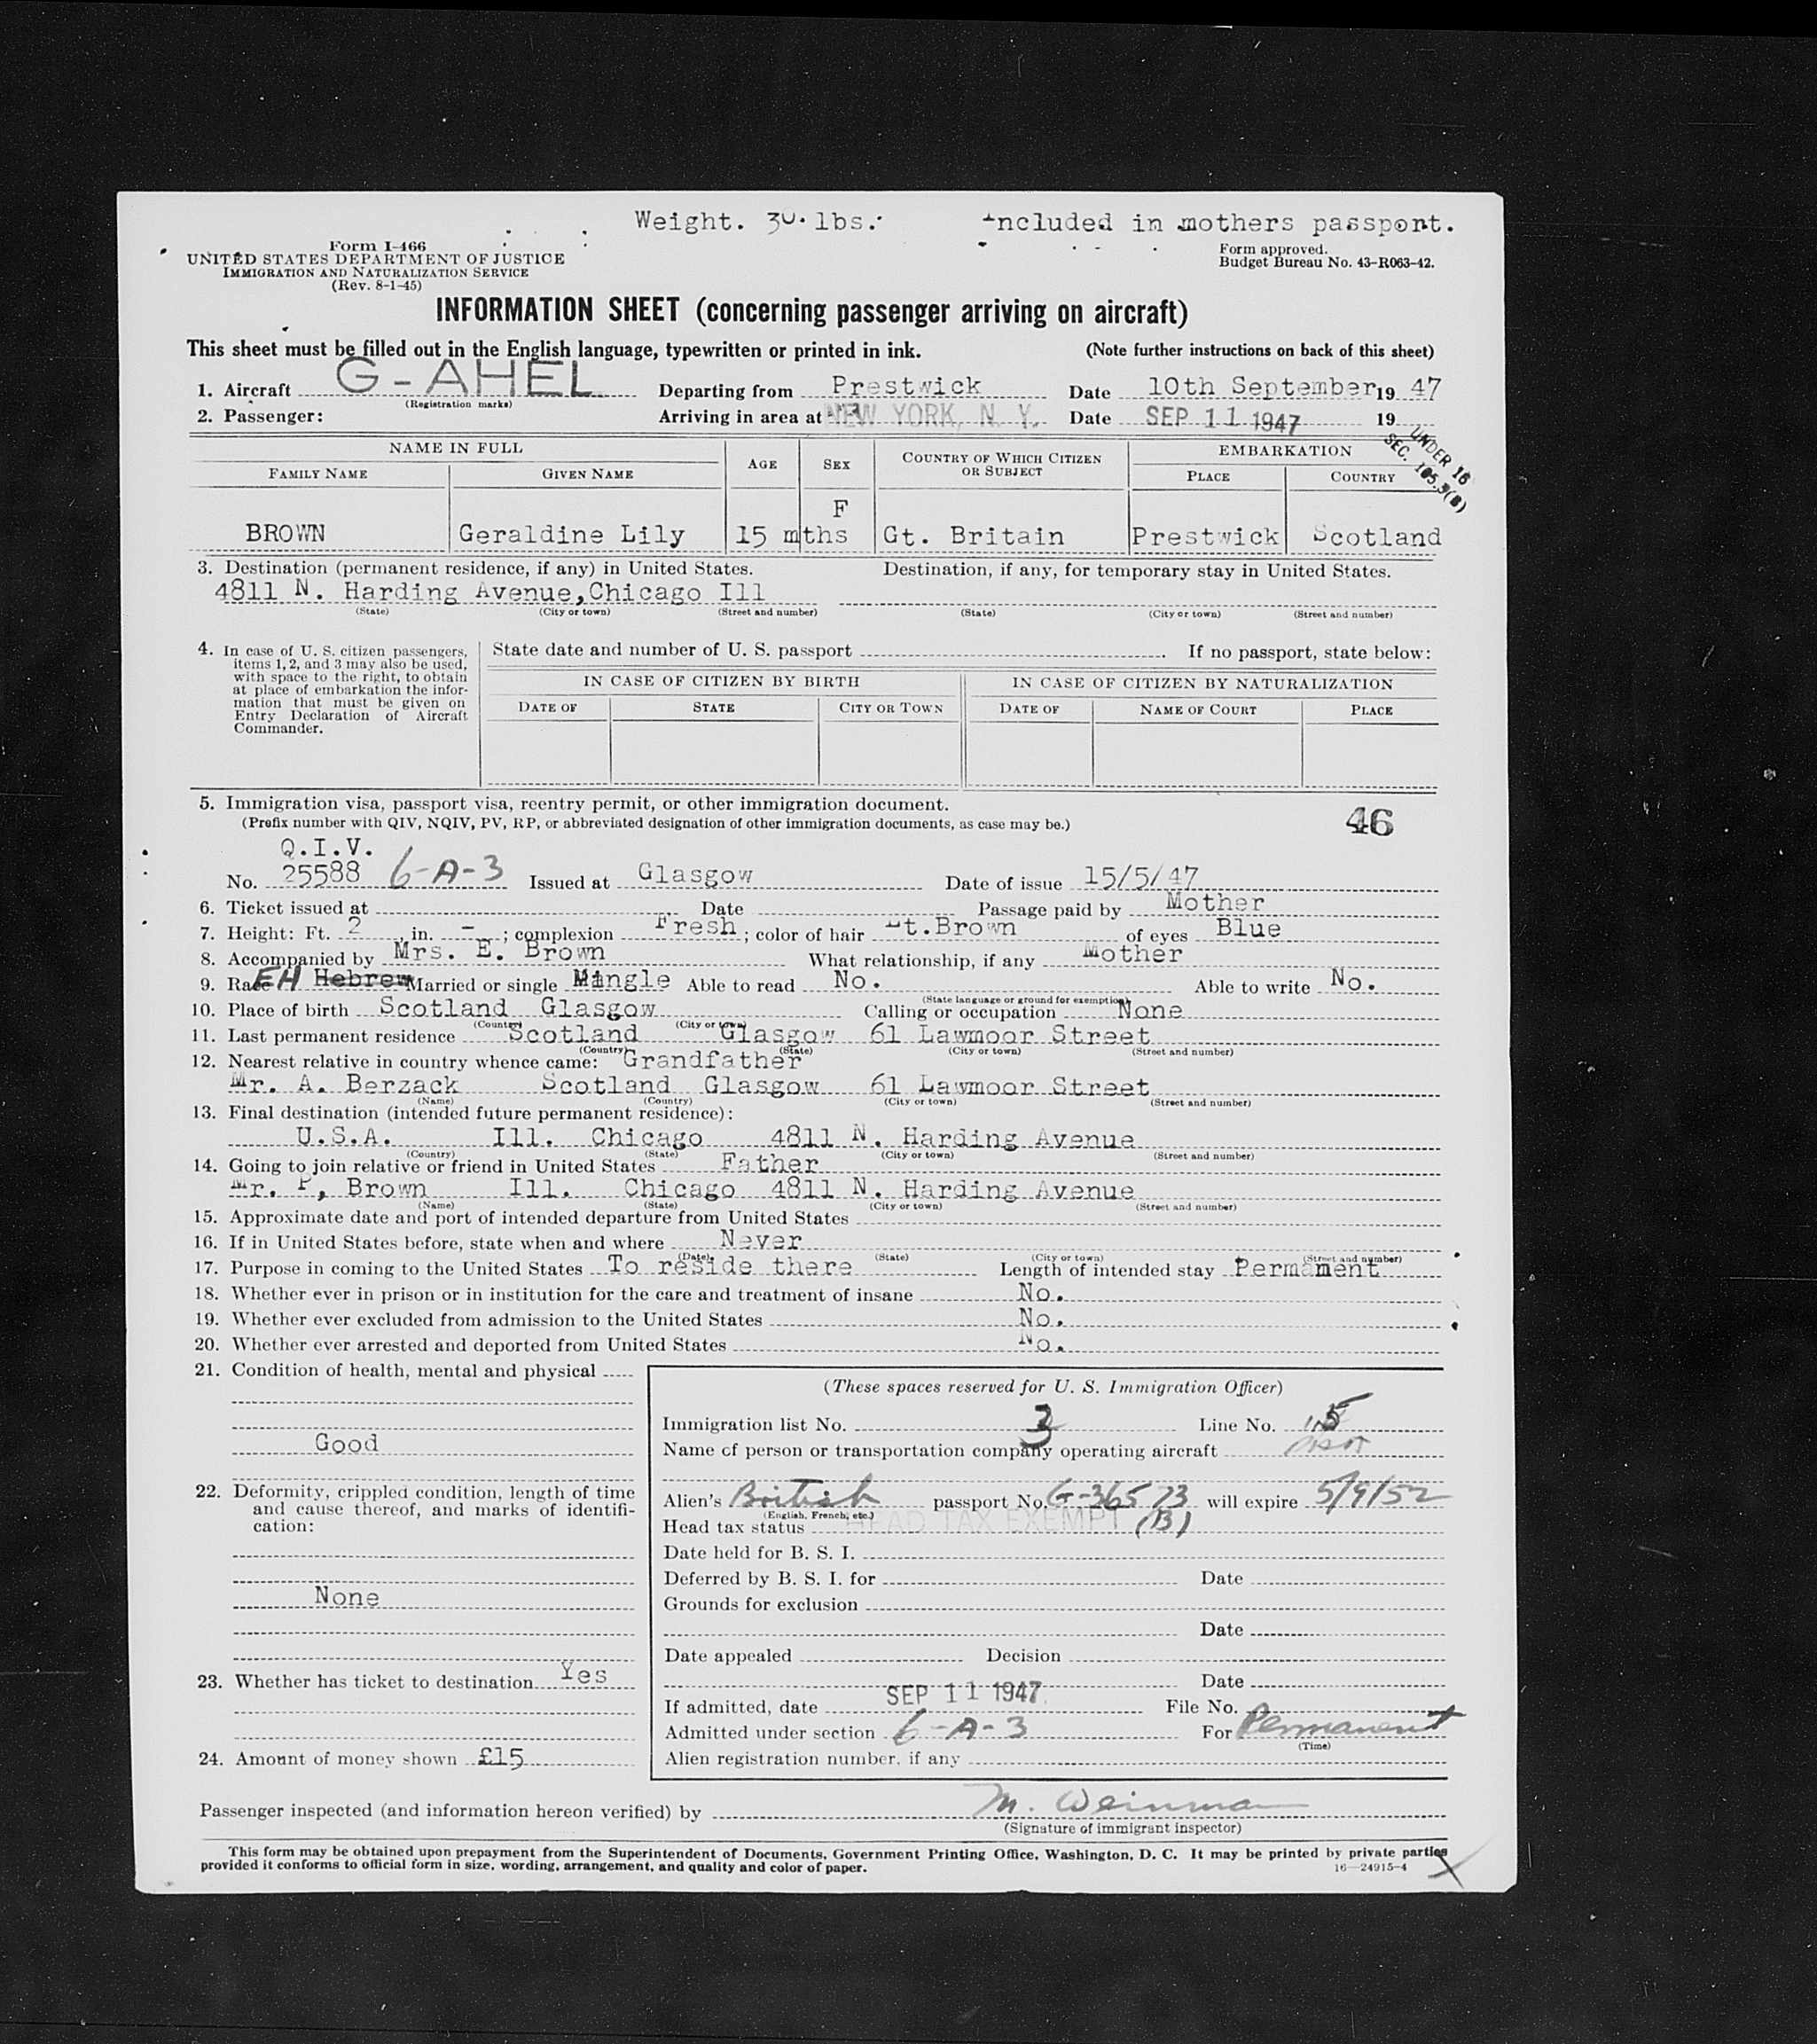 Weight. 30. lbs. Included in mothers passport.
Form I-466
UNITED STATES DEPARTMENT OF JUSTICE
IMMIGRATION AND NATURALIZATION SERVICE
(Rev. 8-1-45)
Form approved.
Budget Bureau No. 43-R063-42.
INFORMATION SHEET (concerning passenger arriving on aircraft)
This sheet must be filled out in the English language, typewritten or printed in ink. (Note further instructions on back of this sheet)
1. Aircraft G-AHEL Departing from Prestwick Date 10th September 19 47
(Registration marks)
2. Passenger: Arriving in area at NEW YORK, N. Y. Date SEP 11 1947 19
UNDER 16
SEC. 105.3(B)
NAME IN FULL AGE SEX COUNTRY OF WHICH CITIZEN OR SUBJECT EMBARKATION
FAMILY NAME GIVEN NAME PLACE COUNTRY
F
BROWN Geraldine Lily 15 mths Gt. Britain Prestwick Scotland
3. Destination (permanent residence, if any) in United States. Destination, if any, for temporary stay in United States.
4811 N. Harding Avenue, Chicago Ill
(State) (City or town) (Street and number) (State) (City or town) (Street and number)
4. In case of U. S. citizen passengers, items 1, 2, and 3 may also be used, with space to the right, to obtain at place of embarkation the information that must be given on Entry Declaration of Aircraft Commander.
State date and number of U. S. passport . If no passport, state below:
IN CASE OF CITIZEN BY BIRTH IN CASE OF CITIZEN BY NATURALIZATION
DATE OF STATE CITY OR TOWN DATE OF NAME OF COURT PLACE
5. Immigration visa, passport visa, reentry permit, or other immigration document.
(Prefix number with QIV, NQIV, PV, RP, or abbreviated designation of other immigration documents, as case may be.)
46
Q.I.V.
No. 25588 6-A-3 Issued at Glasgow Date of issue 15/5/47
6. Ticket issued at Date Passage paid by Mother
7. Height: Ft. 2, in. - ; complexion Fresh ; color of hair Lt.Brown of eyes Blue
8. Accompanied by Mrs. E. Brown What relationship, if any Mother
9. Race EH Hebrew Married or single Single Able to read No. Able to write No.
(State language or ground for exemption)
10. Place of birth Scotland Glasgow Calling or occupation None
(Country) (City or town)
11. Last permanent residence Scotland Glasgow 61 Lawmoor Street
(Country) (State) (City or town) (Street and number)
12. Nearest relative in country whence came: Grandfather
Mr. A. Berzack Scotland Glasgow 61 Lawmoor Street
(Name) (Country) (City or town) (Street and number)
13. Final destination (intended future permanent residence):
U.S.A. Ill. Chicago 4811 N. Harding Avenue
(Country) (State) (City or town) (Street and number)
14. Going to join relative or friend in United States Father
Mr. P, Brown Ill. Chicago 4811 N. Harding Avenue
(Name) (State) (City or town) (Street and number)
15. Approximate date and port of intended departure from United States
16. If in United States before, state when and where Never
(Date) (State) (City or town) (Street and number)
17. Purpose in coming to the United States To reside there Length of intended stay Permanent
18. Whether ever in prison or in institution for the care and treatment of insane No.
19. Whether ever excluded from admission to the United States No.
20. Whether ever arrested and deported from United States No.
21. Condition of health, mental and physical
Good
22. Deformity, crippled condition, length of time and cause thereof, and marks of identification:
None
23. Whether has ticket to destination Yes
24. Amount of money shown £15
(These spaces reserved for U. S. Immigration Officer)
Immigration list No. 3 Line No. 5
Name of person or transportation company operating aircraft
Alien's British passport No. G-36573 will expire 5/9/52
(English, French, etc.)
Head tax status HEAD TAX EXEMPT (B)
Date held for B. S. I.
Deferred by B. S. I. for Date
Grounds for exclusion
Date
Date appealed Decision
Date
If admitted, date SEP 11 1947 File No.
Admitted under section 6-A-3 For Permanent
(Time)
Alien registration number, if any
Passenger inspected (and information hereon verified) by M. Weinman
(Signature of immigrant inspector)
This form may be obtained upon prepayment from the Superintendent of Documents, Government Printing Office, Washington, D. C. It may be printed by private parties
provided it conforms to official form in size, wording, arrangement, and quality and color of paper. 16-24915-4